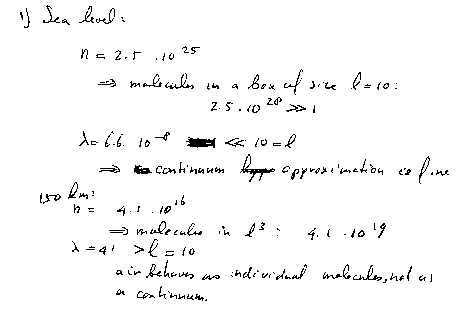 1) Sea level:
n = 2.5 . 10^25
⇒ molecules in a box of size l = 10:
2.5 . 10^28 ≫ 1
λ = 6.6. 10^-8 ≪ 10 = l
⇒ continuum approximation is fine
150 km:
n = 4.1 . 10^16
⇒ molecules in l^3 : 4.1 . 10^19
λ = 41 > l = 10
air behaves as individual molecules, not as
a continuum.